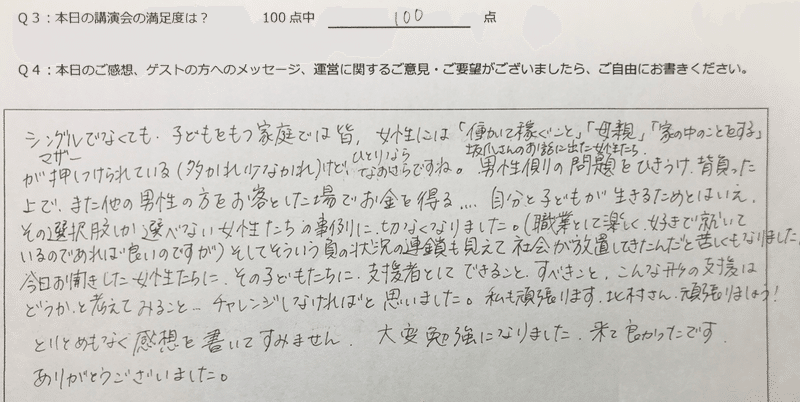 Q3：本日の講演会の満足度は？　100点中　100　点
Q4：本日のご感想、ゲストの方へのメッセージ、運営に関するご意見・ご要望がございましたら、ご自由にお書きください。
シングルでなくても、子どもをもつ家庭では皆、女性には「働かて稼ぐこと」「母親」「家の中のことをする」
マザー
坂爪さんのお話に出た女性たち、
ひとりなら
が押しつけられている(多かれ少なかれ)けど、なおさらですね。男性側の問題をひきうけ、背負った
上で、また他の男性の方をお客とした場でお金を得る....自分と子どもが生きるためとはいえ、
その選択肢しか選べない女性たちの事例に、切なくなりました。(職業として楽しく、好きで就いて
いるのであれば良いのですが)そしてそういう負の状況の連鎖も見えて社会が放置してきたんだと苦しくもなりました。
今日お聞きした女性たちに、その子どもたちに、支援者としてできること、すべきこと、こんな形の支援は
どうか、と考えてみること...チャレンジしなければと思いました。私も頑張ります、北村さん、頑張りましょう！
とりとめもなく感想を書いてすみません。大変勉強になりました。来て良かったです
ありがとうございました。